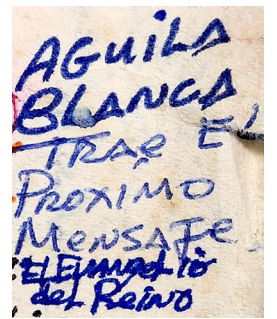 AGUILA
BLANCA
TRAE El
PROXIMO
MENSAJE
El Evangelio
del Reino